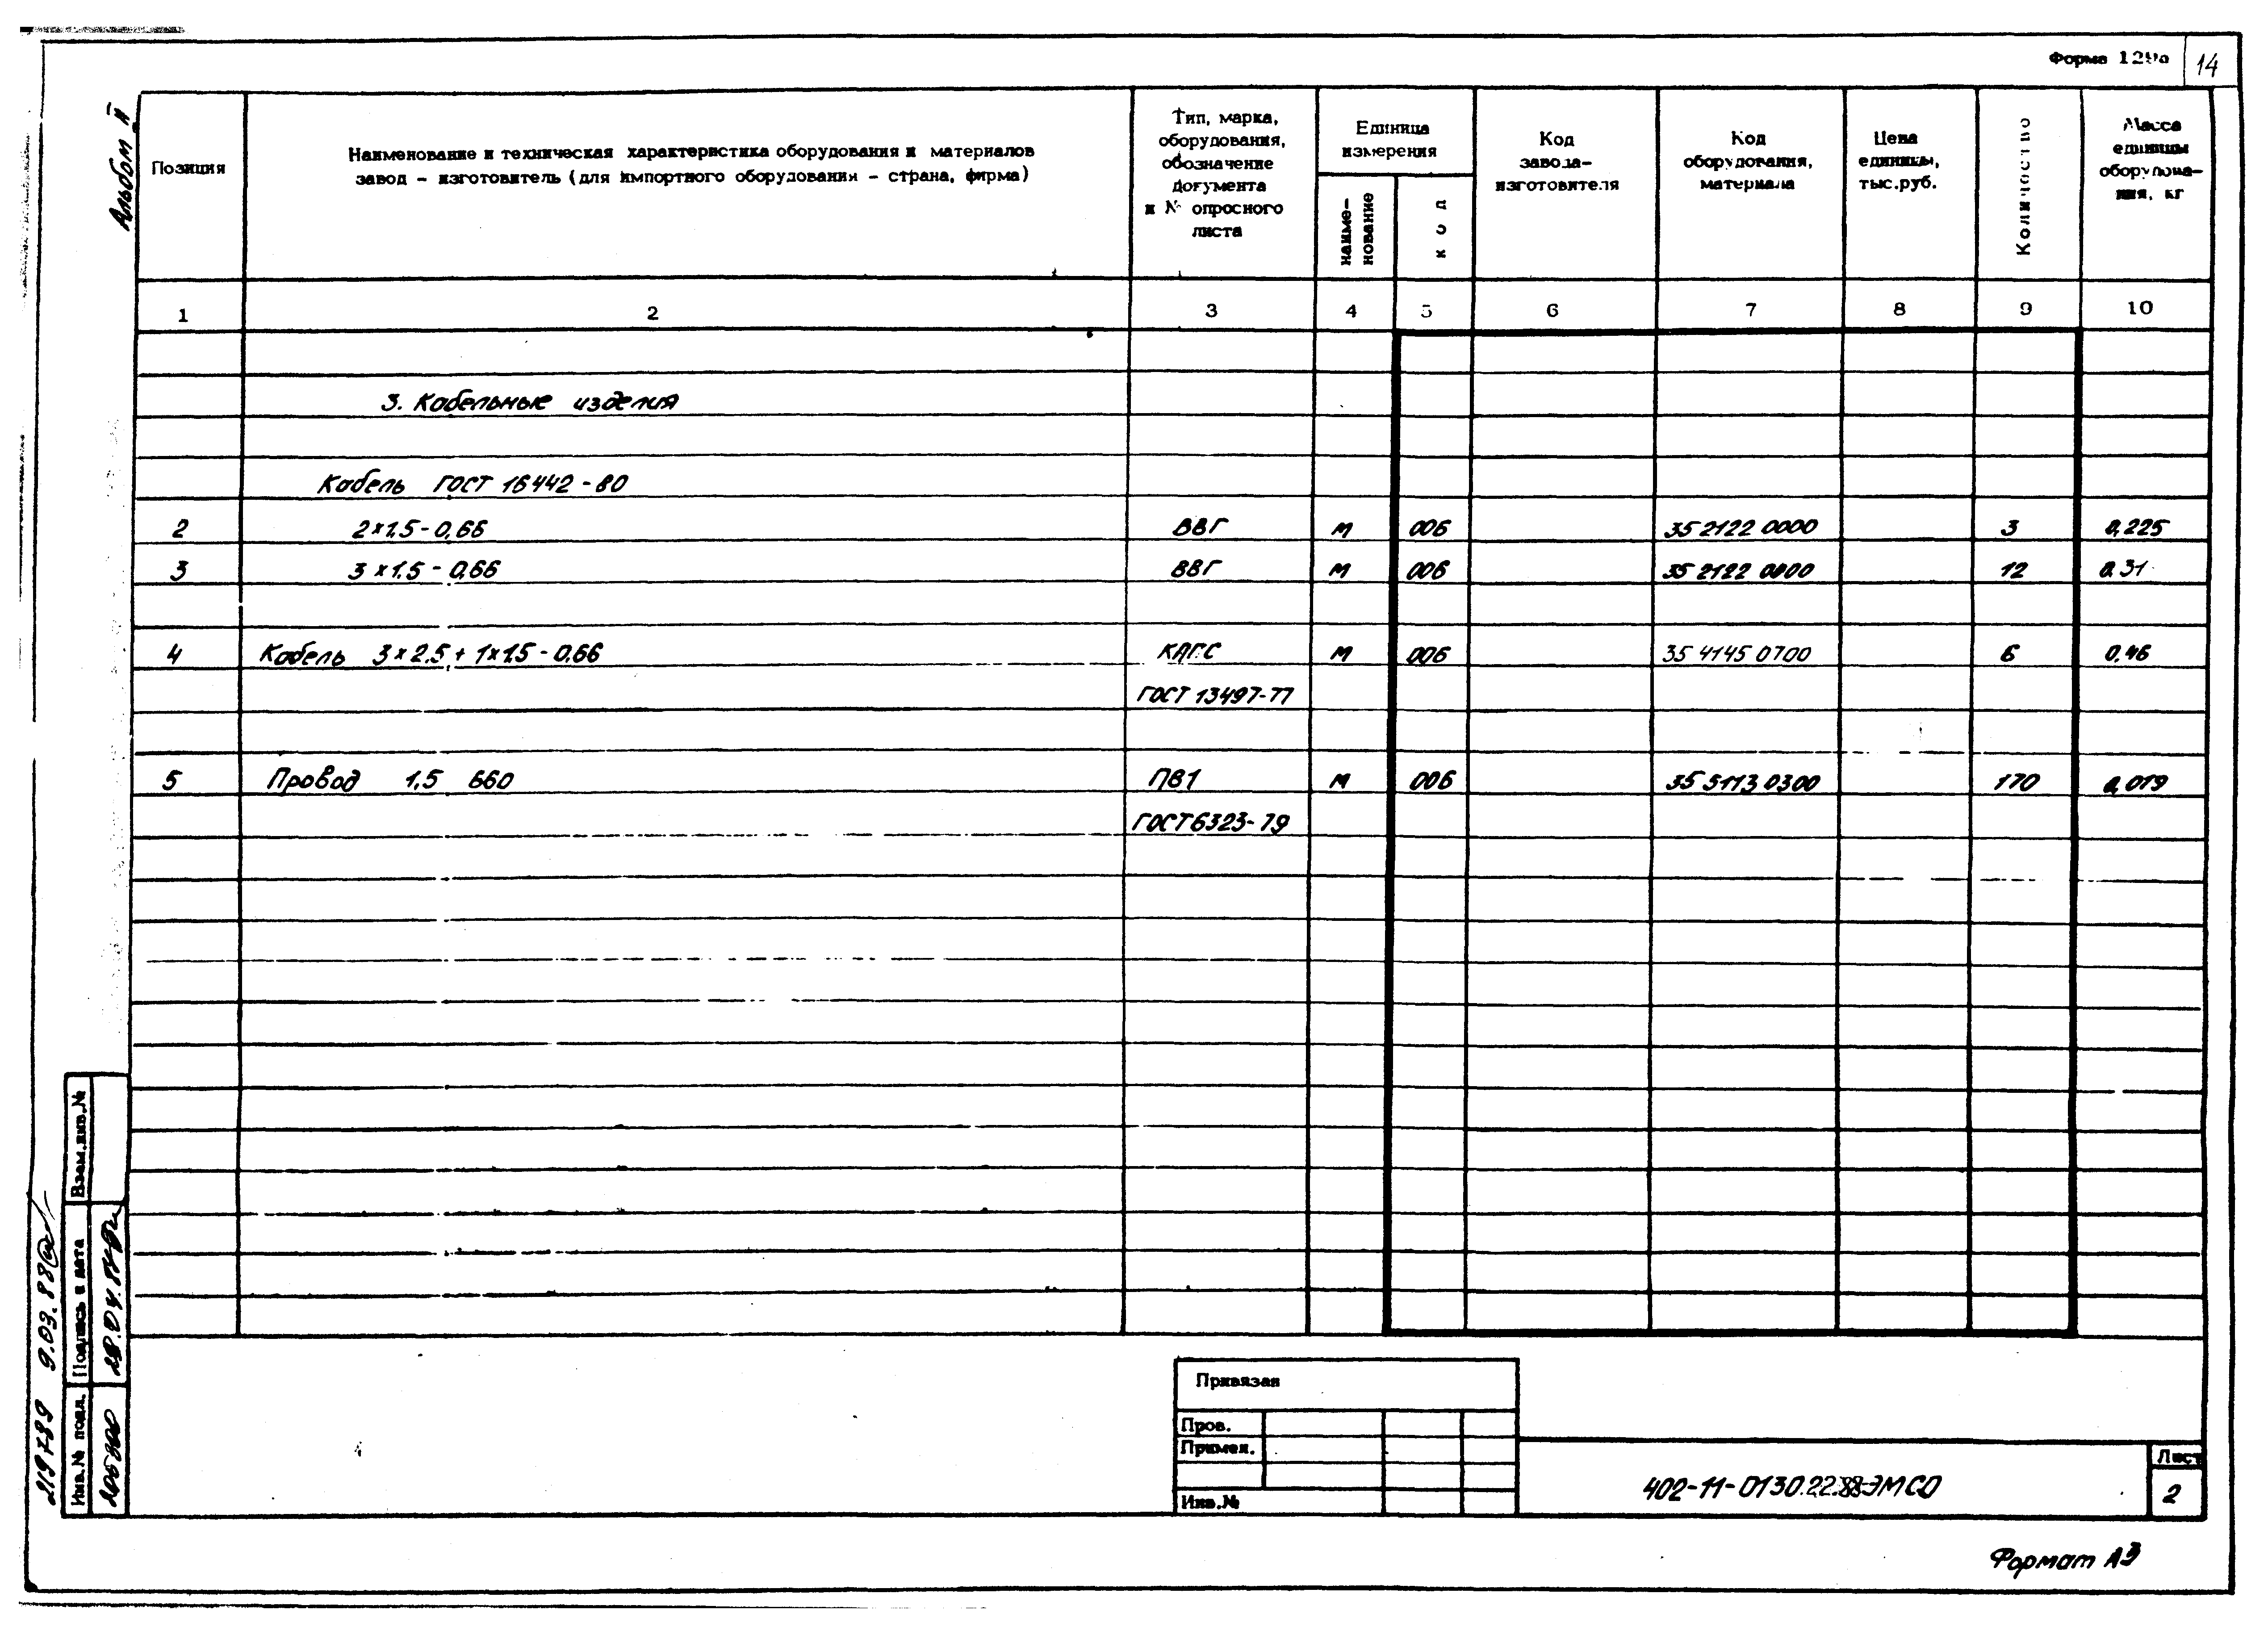 Форма 129а 14
Альбом II
Позиция
Наименование и техническая характеристика оборудования и материалов
завод – изготовитель (для импортного оборудования – страна, фирма)
Тип, марка,
оборудования,
обозначение
документа
и № опросного
листа
Единица
измерения
наиме-
нование
код
Код
завода-
изготовителя
Код
оборудования,
материала
Цена
единицы,
тыс.руб.
Количество
Масса
единицы
оборудова-
ния, кг
1 2 3 4 5 6 7 8 9 10
3. Кабельные изделия
Кабель ГОСТ 16442-80
2 2×1,5-0,66 ВВГ м 006 35 2122 0000 3 0,225
3 3×1,5-0,66 ВВГ м 006 35 2122 0000 12 0,31
4 Кабель 3×2,5+1×1,5-0,66 КАГС м 006 35 4145 0700 6 0,46
ГОСТ 13497-77
5 Провод 1,5 660 ПВ1 м 006 35 5113 0300 170 0,019
ГОСТ 6323-79
Взам.инв.№
Подпись и дата
Инв.№ подл.
219789 9.03.88
Привязан
Пров.
Примен.
Инв.№
402-11-0130.22.88-ЭМ СО
Лист
2
Формат А3